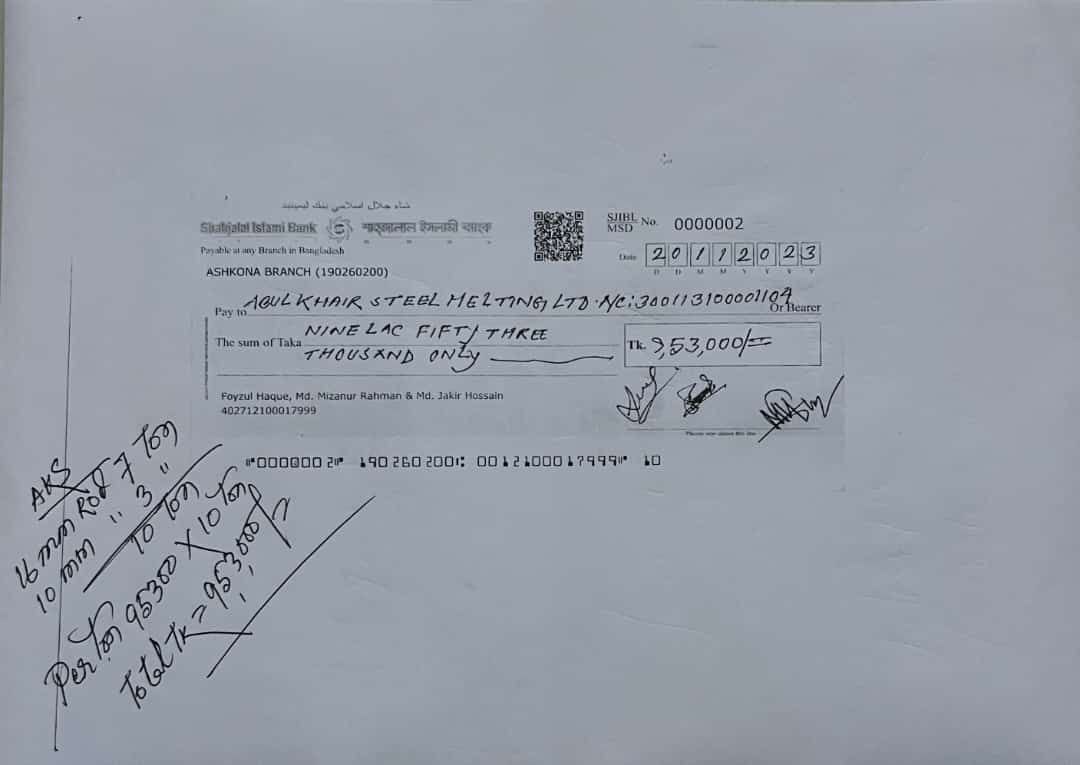 شاه جلال اسلامي بنك ليميتيد
Shahjalal Islami Bank শাহ্‌জালাল ইসলামী ব্যাংক
Payable at any Branch in Bangladesh
ASHKONA BRANCH (190260200)
SJIBL MSD No. 0000002
Date 20112023
D D M M Y Y Y Y
Pay to ABUL KHAIR STEEL MELTING LTD. A/C:300113100001104 Or Bearer
The sum of Taka NINE LAC FIFTY THREE
THOUSAND ONLY
Tk. 9,53,000/=
Foyzul Haque, Md. Mizanur Rahman & Md. Jakir Hossain
402712100017999
Please sign above this line
⑈0000002⑈ 190260200⑆ 0012100017999⑈ 10
AKS
16 mm Rod 7 টন
10 mm " 3 "
10 টন
Per টন 95300 X 10 টন
Total TK = 953000/=